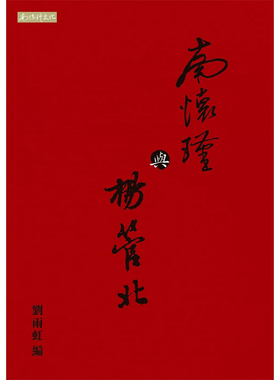 南懷瑾文化
南懷瑾
與
楊管北
劉雨虹 編